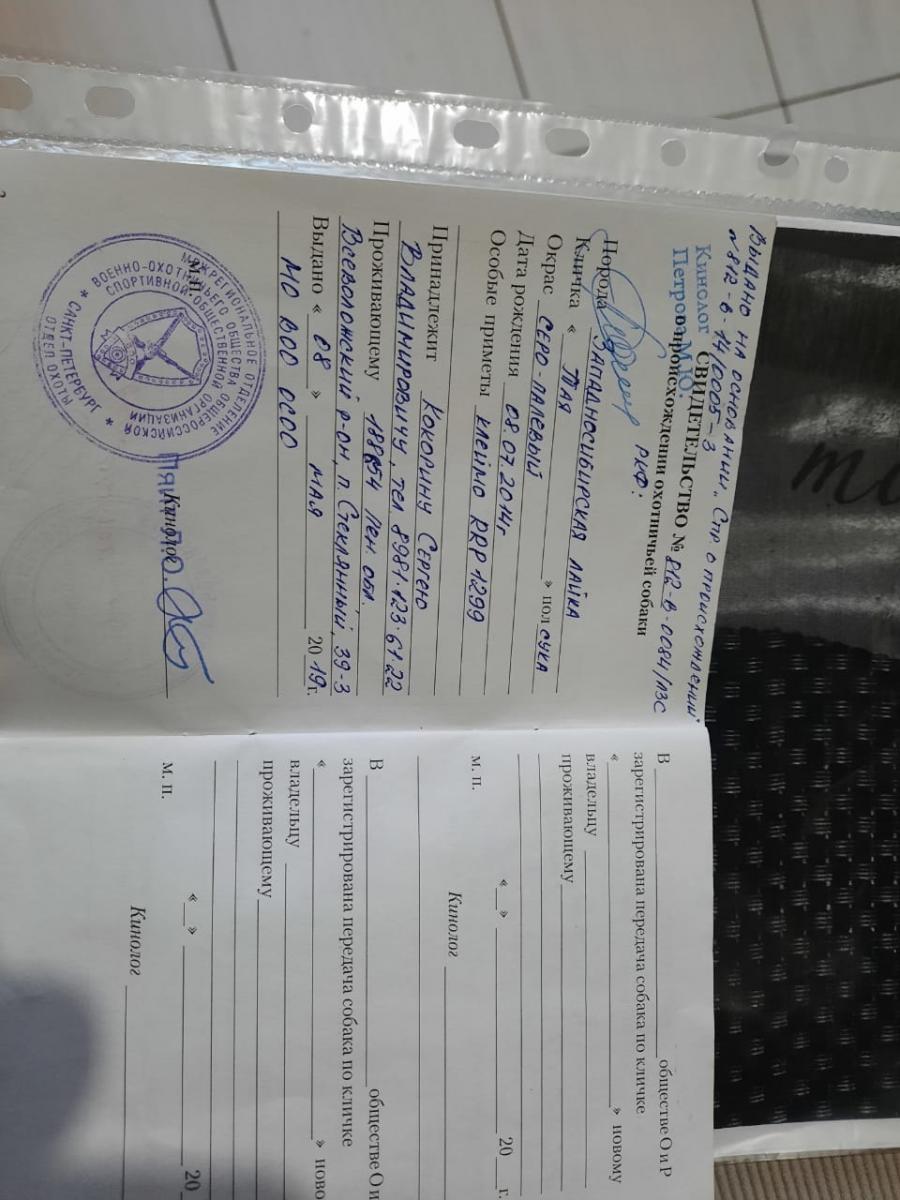 Выдано на основании „Спр о происхождении
№812-В-14/0005-3
Кинолог
Петрова М.Ю.
СВИДЕТЕЛЬСТВО № 812-В-0084/ЛЗС
о происхождении охотничьей собаки
РКФ:
Порода Западносибирская лайка
Кличка « Тая » пол сука
Окрас серо-палевый
Дата рождения 08.07.2014г
Особые приметы клеймо RRP 1299
Принадлежит Кокорину Сергею
Владимировичу, тел 8981.123.61.22
Проживающему 188654 Лен. обл.,
Всеволожский р-он, п. Стеклянный, 39-3
Выдано « 08 » мая 2019г.
МО ВОО ОСОО
М.П.
Кинолог
МЕЖРЕГИОНАЛЬНОЕ ОТДЕЛЕНИЕ
ВОЕННО-ОХОТНИЧЬЕГО ОБЩЕСТВА ОБЩЕРОССИЙСКОЙ
СПОРТИВНОЙ ОБЩЕСТВЕННОЙ ОРГАНИЗАЦИИ
* САНКТ-ПЕТЕРБУРГ *
ОТДЕЛ ОХОТЫ
В обществе О и Р
зарегистрирована передача собака по кличке
« » новому
владельцу
проживающему
м. п. « » 20 г.
Кинолог
В обществе О и
зарегистрирована передача собака по кличке
« » ново
владельцу
проживающему
м. п. « » 20
Кинолог